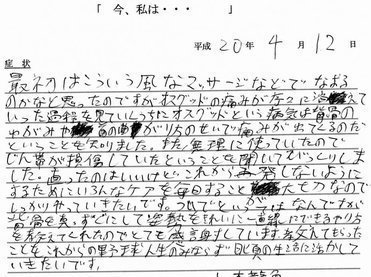 「 今、私は・・・ 」
平成 20 年 4 月 12 日
症 状
最初はこういう風なマッサージなどでなおる
のかなと思ったのですがオスグッドの痛みが徐々に
いった過程を見ていくうちにオスグッドという病気は背骨の
ゆがみや首の曲がりのせいで痛みが出てくるのだ
ということを知りました。また無理に使っていたので
じん帯が損傷していたということを聞いてびっくりしま
した。直ったのはいいけど、これから再発しないように
するためにいろんなケアを毎日することが大切なので
しっかりやっていきたいです。
背骨を真っすぐにして姿勢をきれいに一直線にできるやり方
を教えてくれたのでとても感謝しています。教えてもらった
ことをこれからの野球人生のみならず日頃の生活に活かして
いきたいです。